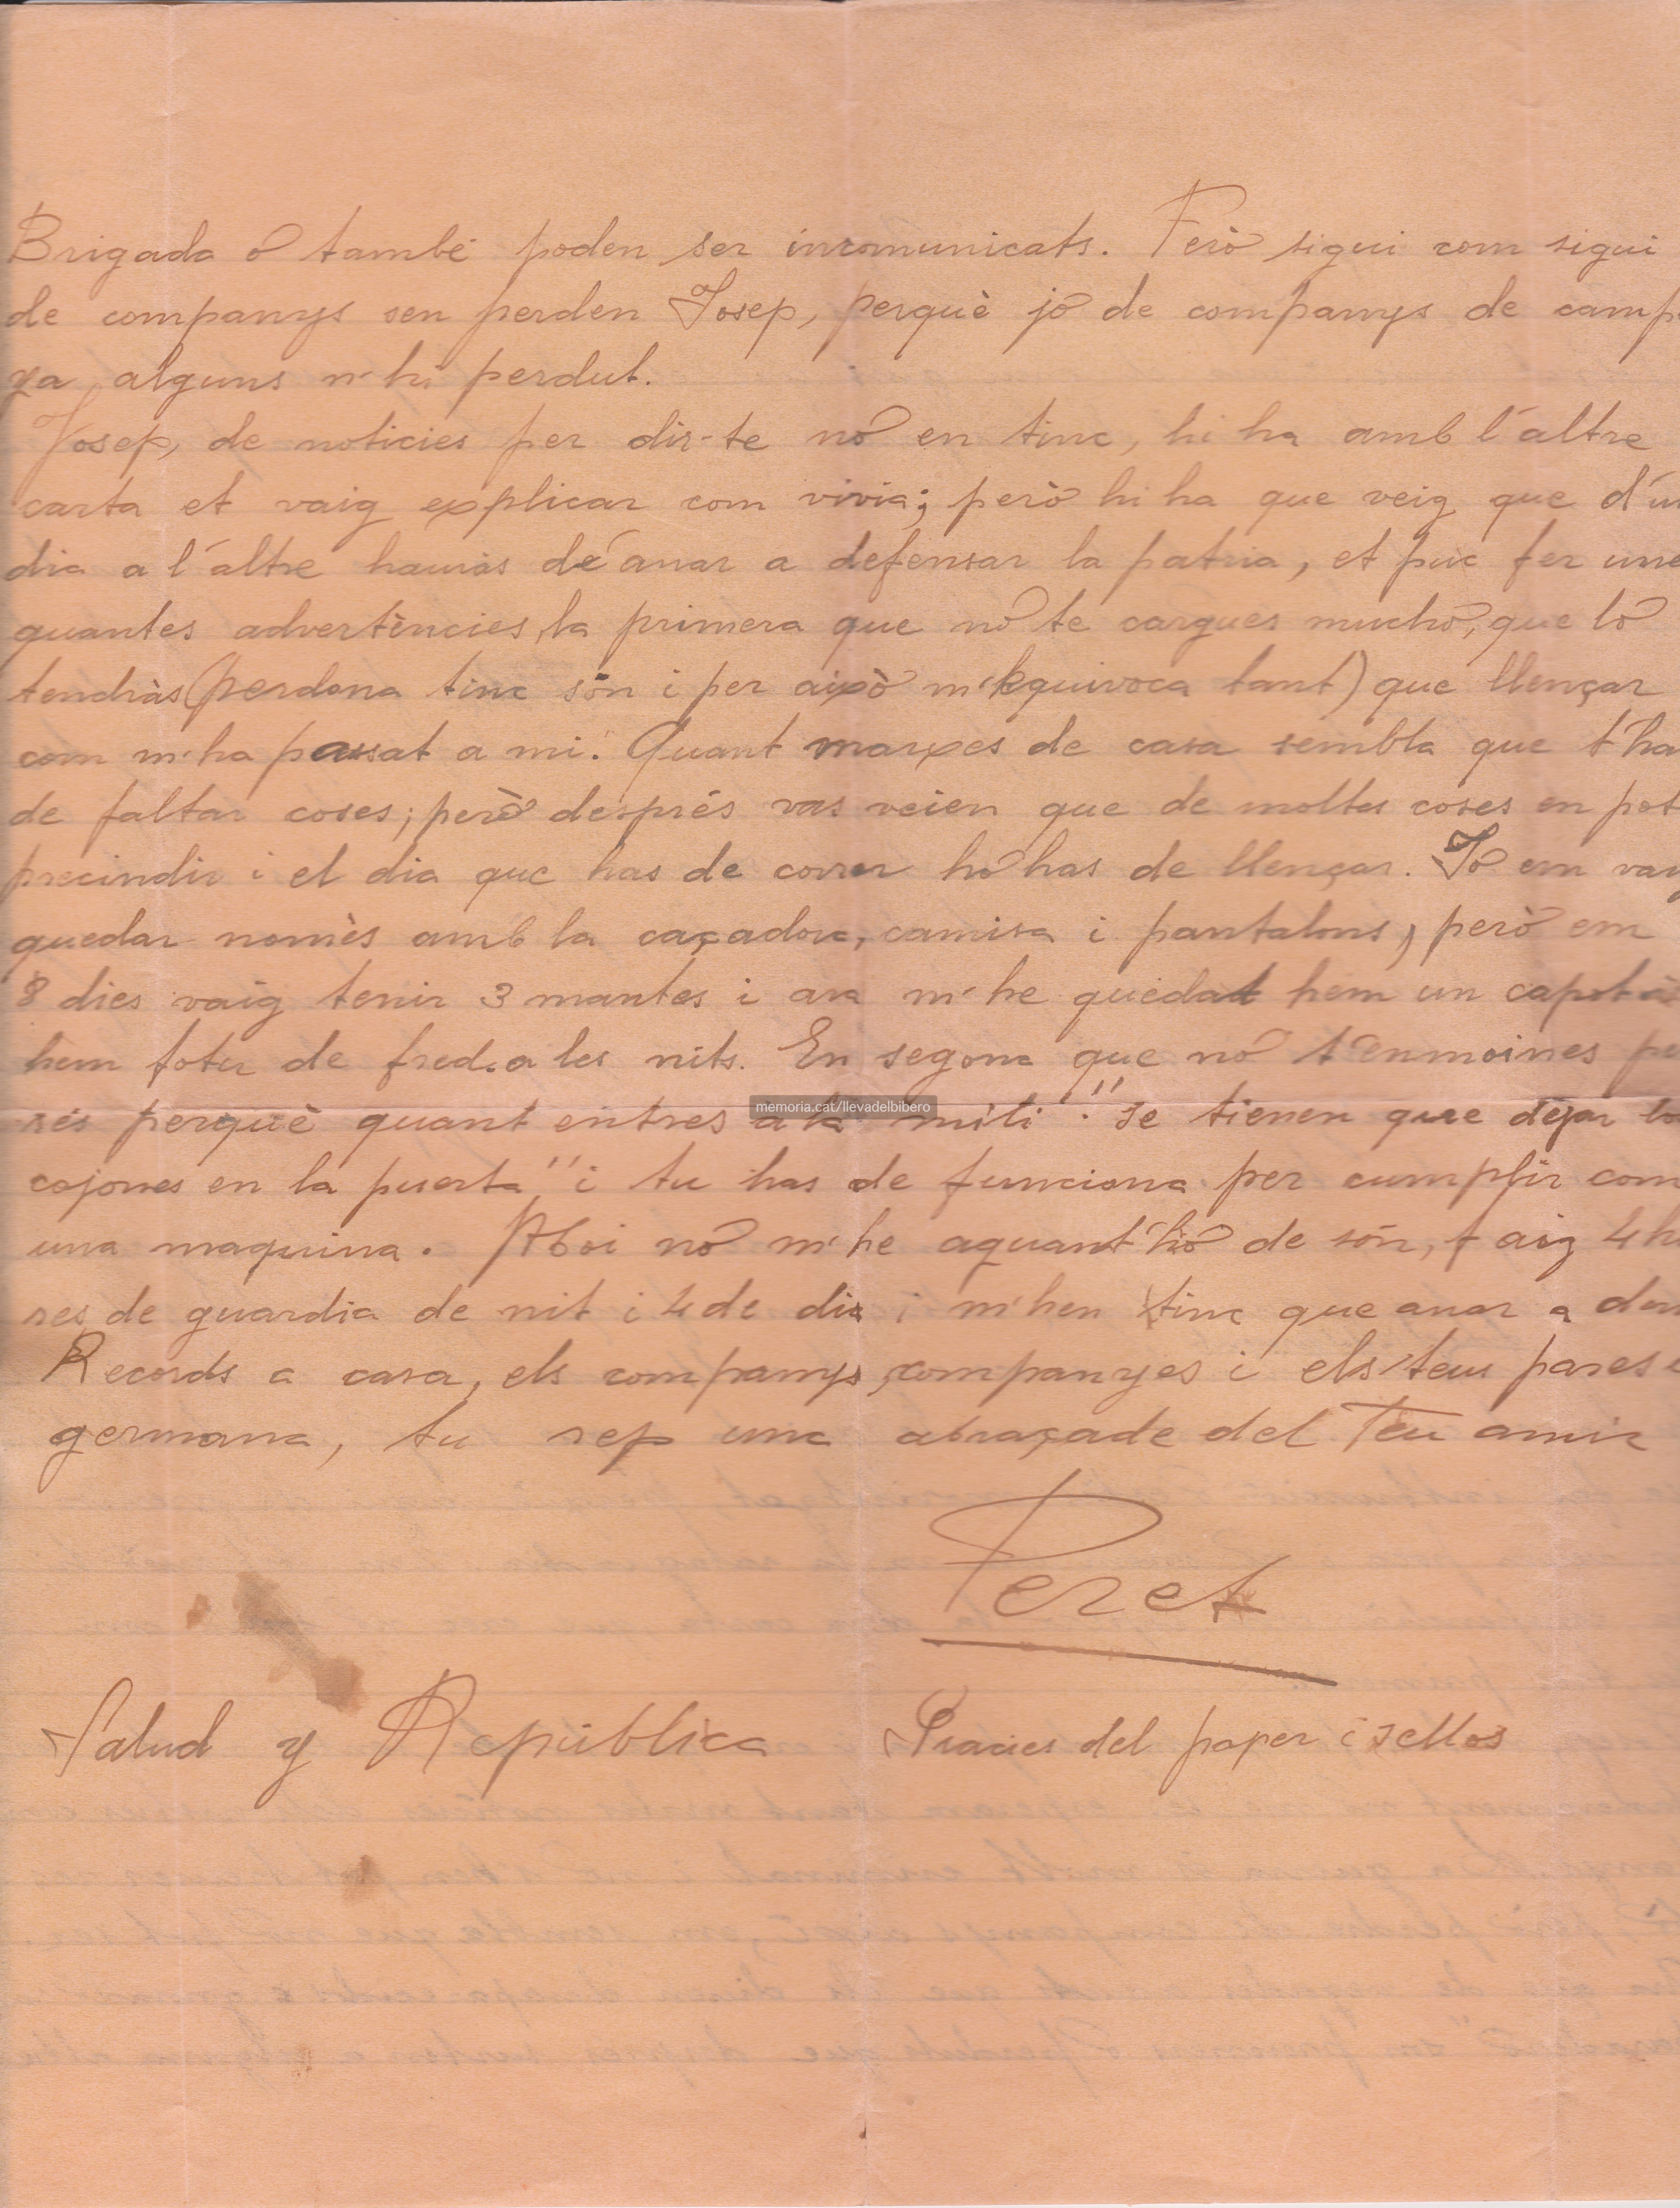 Brigada o també poden ser incomunicats. Però sigui com sigui
de companys sen perden Josep, perquè jo de companys de camp
ya alguns n'hi perdut.
Josep, de noticies per dir-te no en tinc, hi ha amb l'altre
carta et vaig explicar com vivia; però hi ha que veig que d'un
dia a l'altre hauràs de anar a defensar la patria, et puc fer une
quantes advertències, la primera que no te cargues mucho, que lo
tendràs (perdona tinc són i per això m'equivoca tant) que llençar
com m'ha passat a mi. Quant marxes de casa sembla que t'ha
de faltar coses; però després vas veien que de moltes coses en pot
precindir i el dia que has de correr ho has de llençar. Jo em vaig
quedar nomès amb la caçadora, camisa i pantalons, però em
8 dies vaig tenir 3 mantes i ara m'he quedat hem un capot
hem fotu de fred a les nits. En segona que no t'enmoines pe
rés perquè quant entres a la "mili": "se tienen que dejar lo
cojones en la puerta" i tu has de funciona per cumplir com
una maquina. Aboi no m'he aquant hó de són, faig 4 ho
res de guardia de nit i 4 de dia i m'hen tinc que anar a dor
Records a casa, els companys, companyes i els teus pares i
germana, tu rep una abraçade del Teu amic
Peret
Salud y República
Gracies del paper i sellos
memoria.cat/llevadelbibero